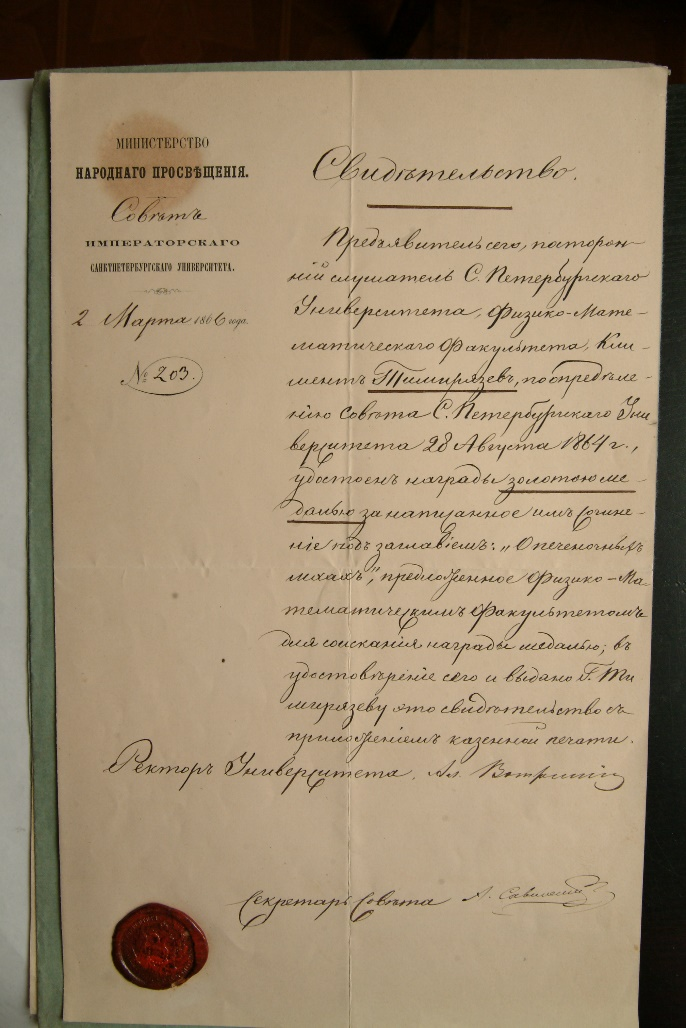 МИНИСТЕРСТВО
НАРОДНАГО ПРОСВѢЩЕНІЯ.
Совѣтъ
ИМПЕРАТОРСКАГО
САНКТПЕТЕРБУРГСКАГО УНИВЕРСИТЕТА.
2 Марта 1866 года.
№ 203.
Свидѣтельство.
Предъявитель сего, посторон-
ній слушатель С. Петербургскаго
Университета, Физико-Мате-
матическаго Факультета, Кли-
ментъ Тимирязевъ, по опредѣле-
нію Совѣта С. Петербургскаго Уни
верситета 28 Августа 1864 г.,
удостоенъ награды золотою ме-
далью за написанное имъ сочине-
ніе подъ заглавіемъ: „О печеночныхъ
мхахъ", предложенное Физико-Ма-
тематическимъ Факультетомъ
для соисканія награды медалью; въ
удостовѣреніе сего и выдано Г. Ти
мирязеву это свидѣтельство съ
приложеніемъ казенной печати.
Ректоръ Университета,
Секретарь Совѣта А.